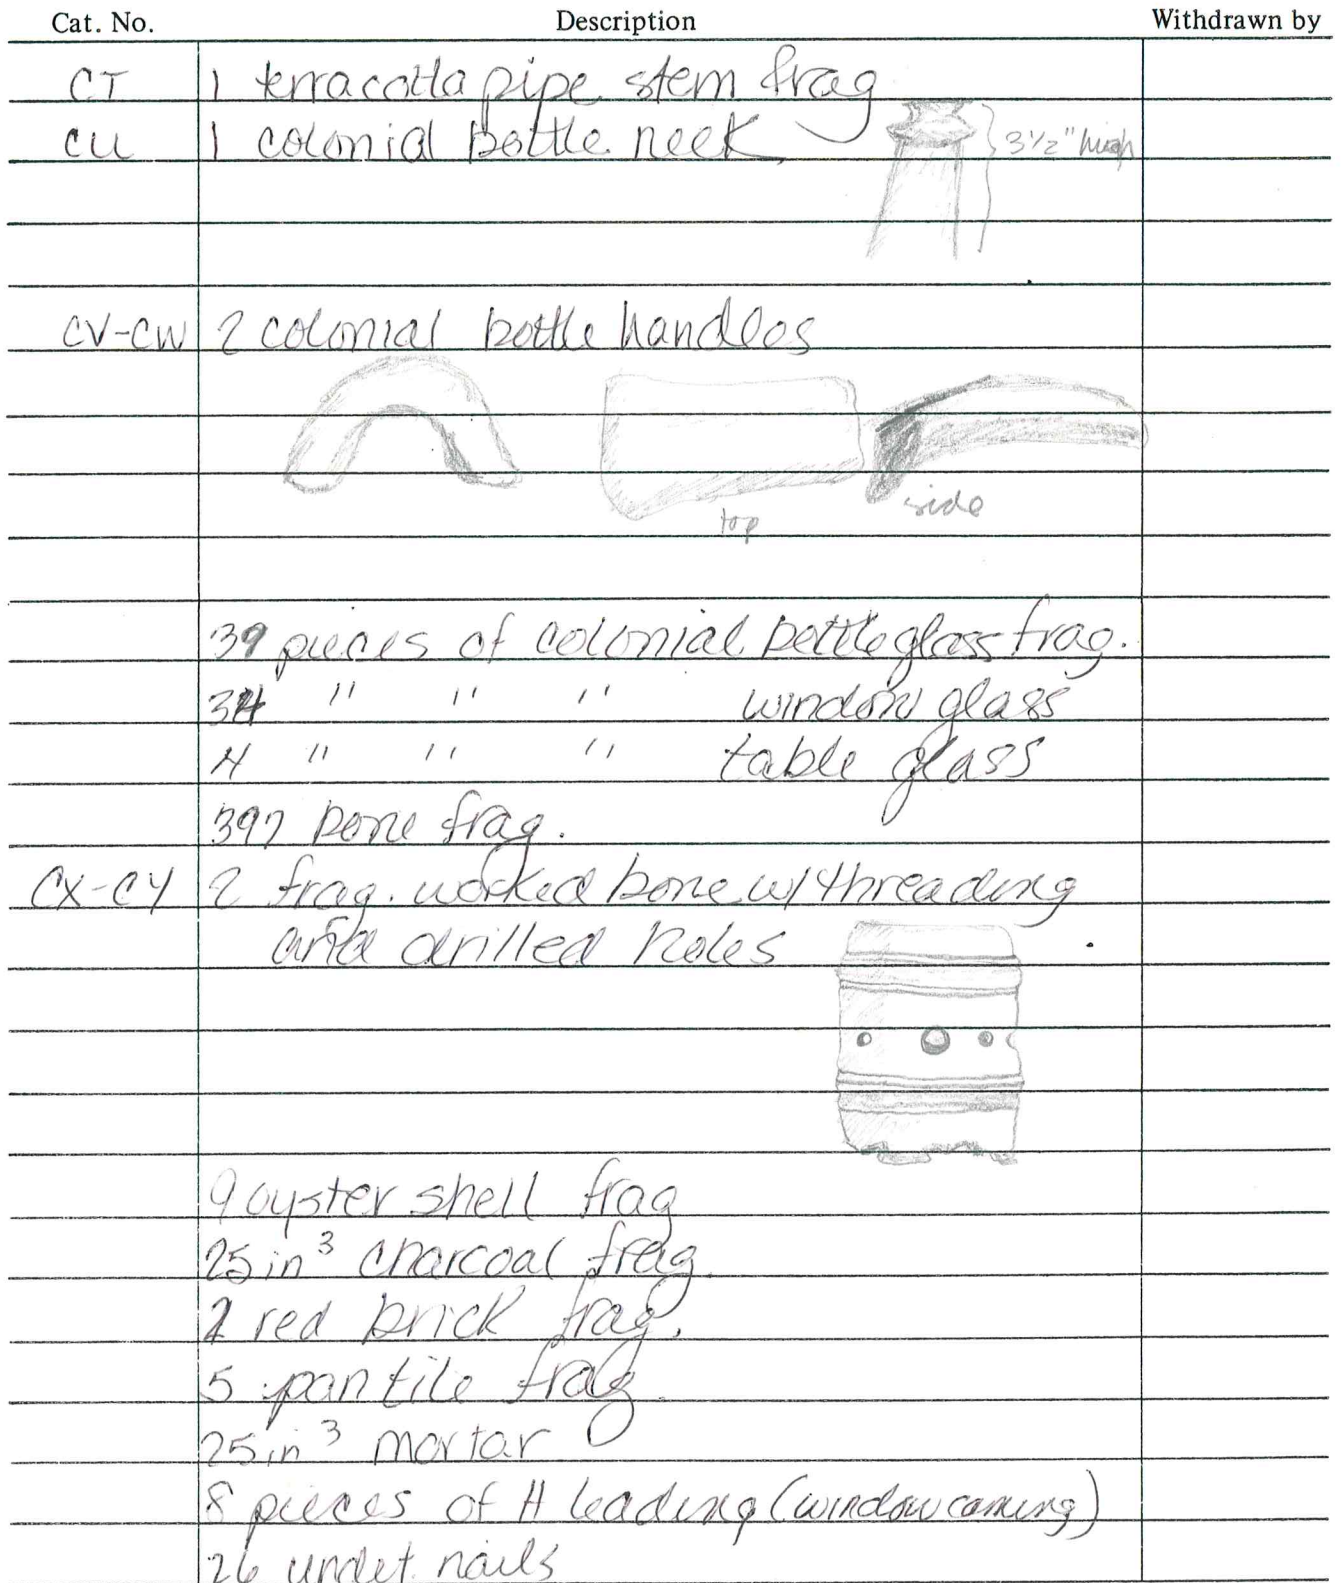 Cat. No. Description Withdrawn by
CT 1 terracotta pipe stem frag
CU 1 colonial bottle neck 3 1/2" high
CV-CW 2 colonial bottle handles
top side
39 pieces of colonial bottle glass frag.
34 " " " window glass
4 " " " table glass
397 bone frag.
CX-CY 2 frag. worked bone w/ threading
and drilled holes
9 oyster shell frag
25 in³ charcoal frag.
red brick frag.
5 pan tile frag.
25 in³ mortar
8 pieces of H leading (window caming)
26 undet. nails